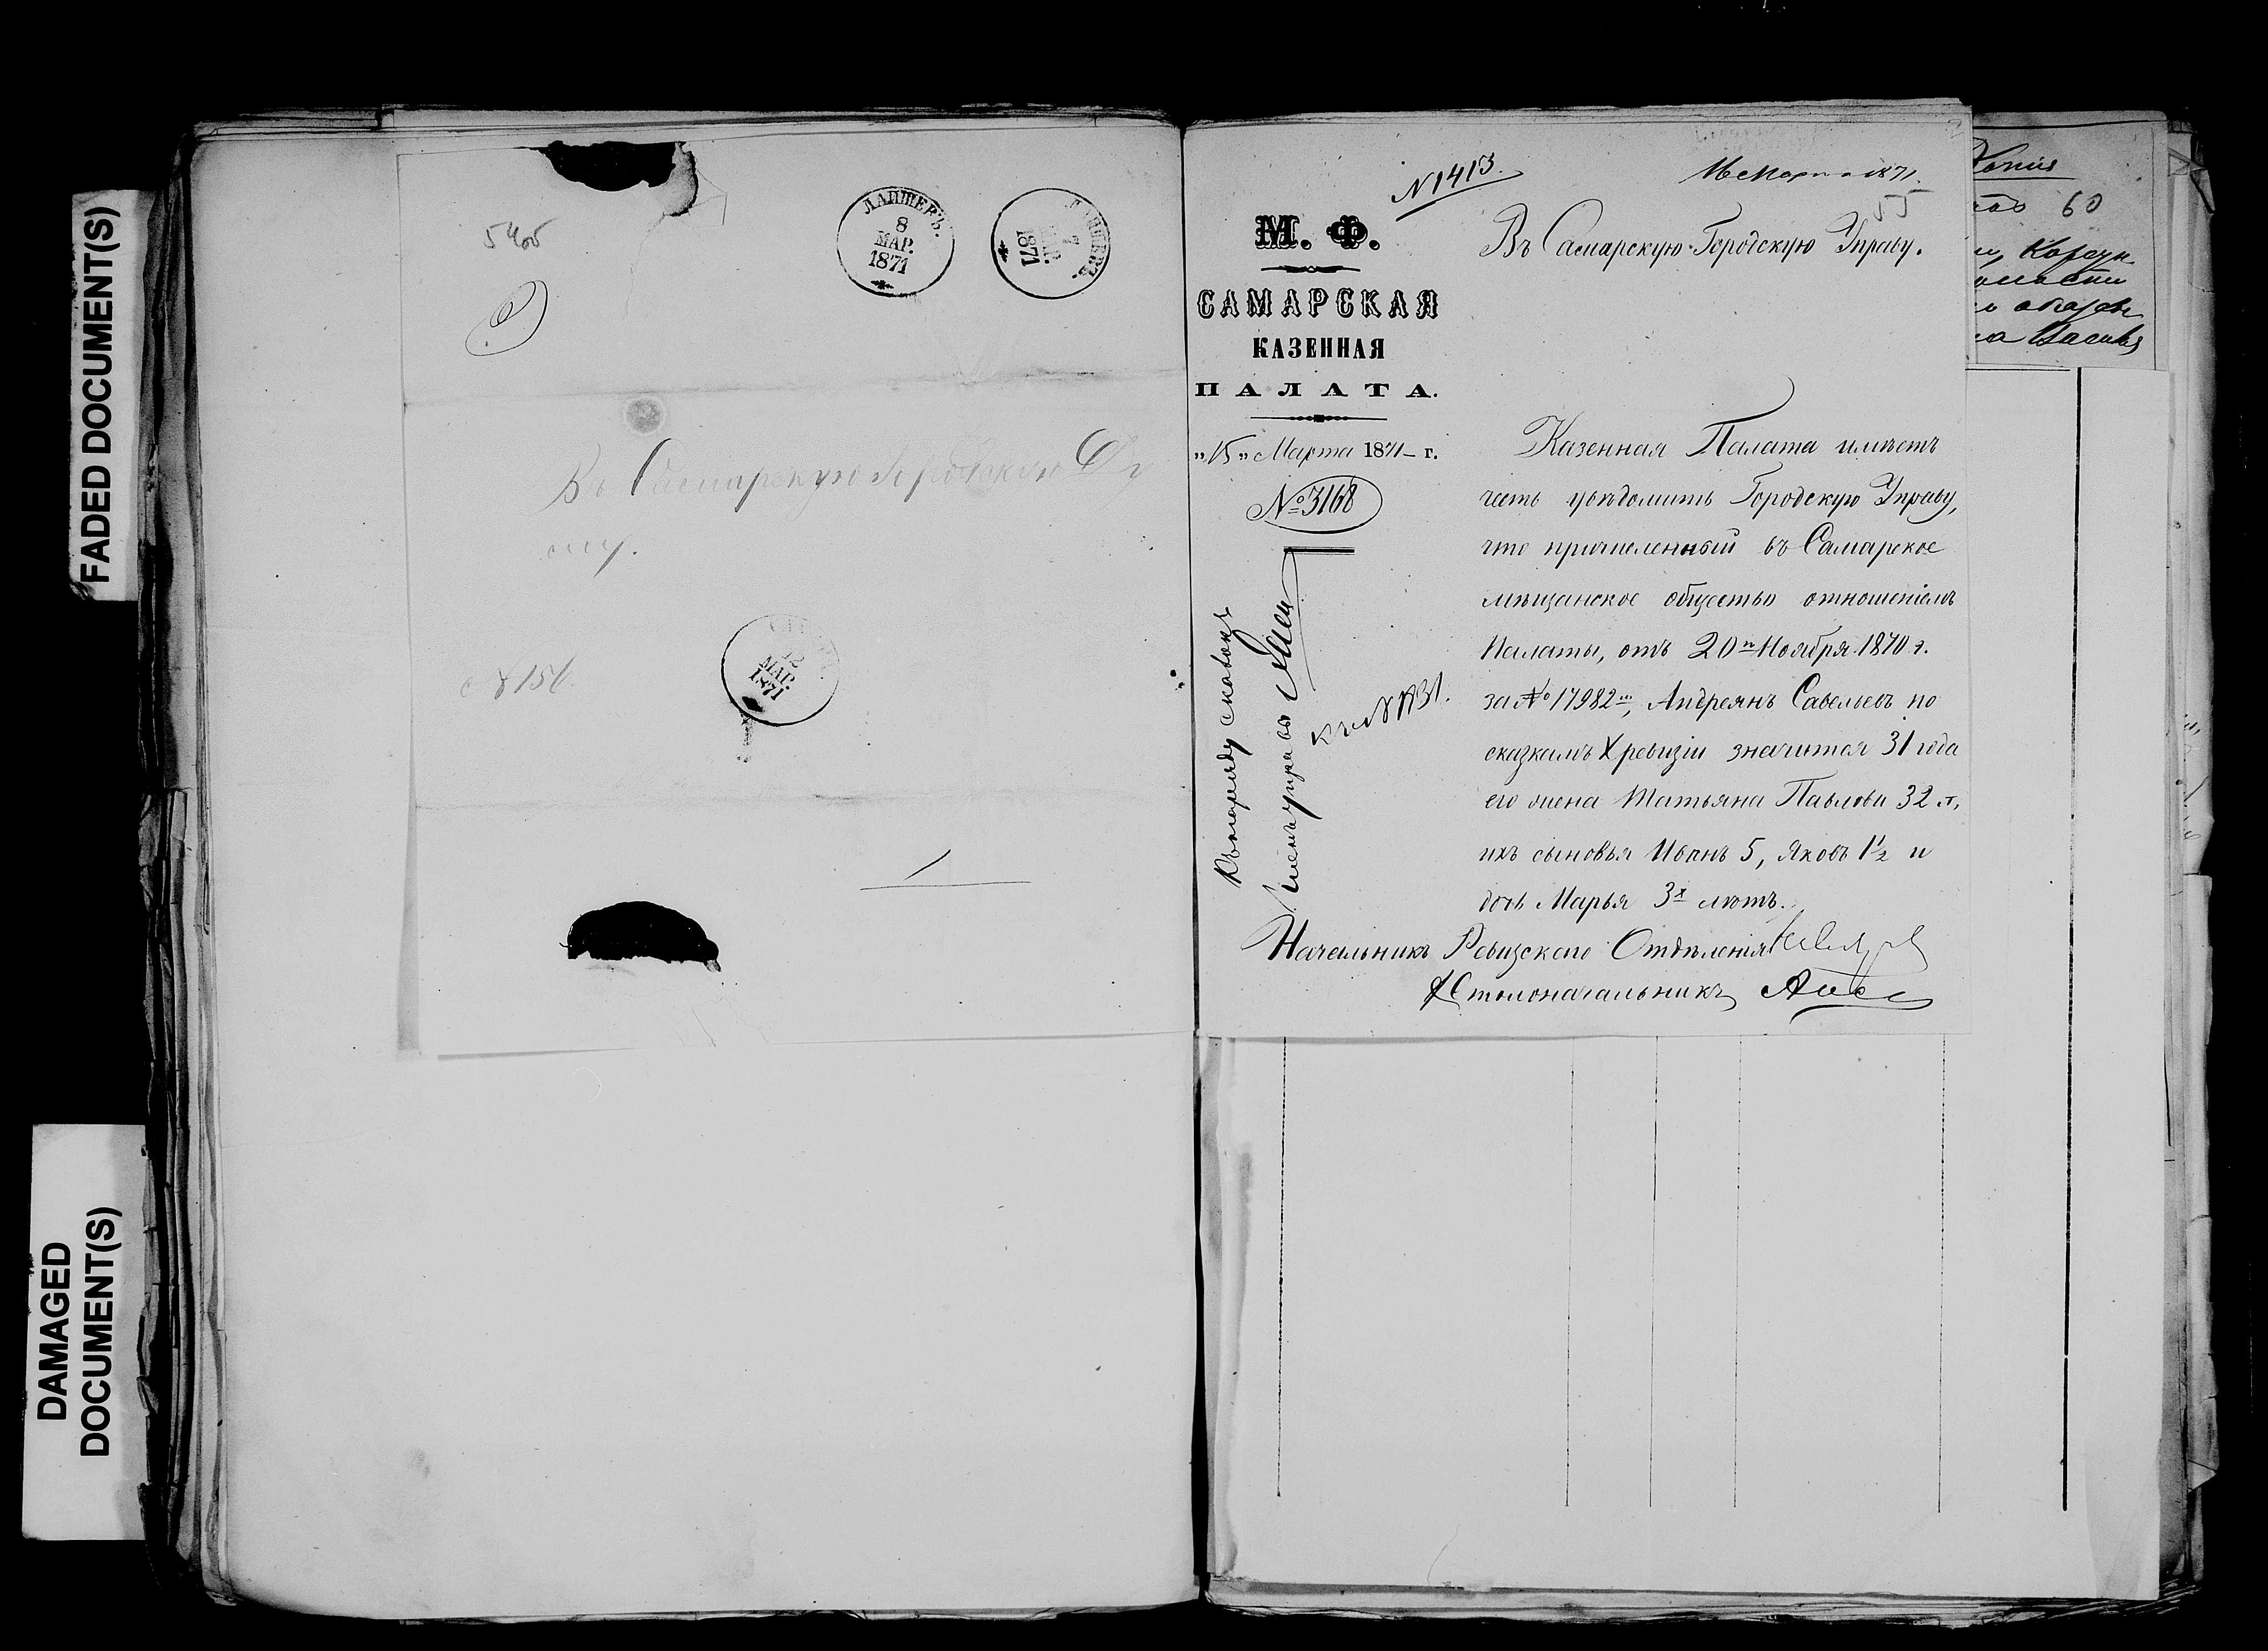 FADED DOCUMENT(S)
DAMAGED
DOCUMENT(S)
ЛАИШЕВЪ.
8
МАР.
1871
7
1871
Въ Самарскую Городскую Ду
му.
№ 156
12
МАР.
1871
№ 1413.
16 Марта 1871.
55
М. Ф.
САМАРСКАЯ
КАЗЕННАЯ
ПАЛАТА.
„15„ Марта 1871 г.
№ 3168
Въ Самарскую Городскую Управу.
Казенная Палата имѣетъ
честь увѣдомить Городскую Управу,
что причисленный въ Самарское
мѣщанское общество отношеніемъ
Палаты, отъ 20 Ноября 1870 г.
за № 17982, Андреянъ Савельевъ по
сказкамъ X ревизіи значится 31 года
его жена Татьяна Павлова 32 л,
ихъ сыновья Иванъ 5, Яковъ 1½ и
дочь Марья 3х лѣтъ.
Начальникъ Ревизскаго Отдѣленія
Столоначальникъ
Членъ управы
Копія
60